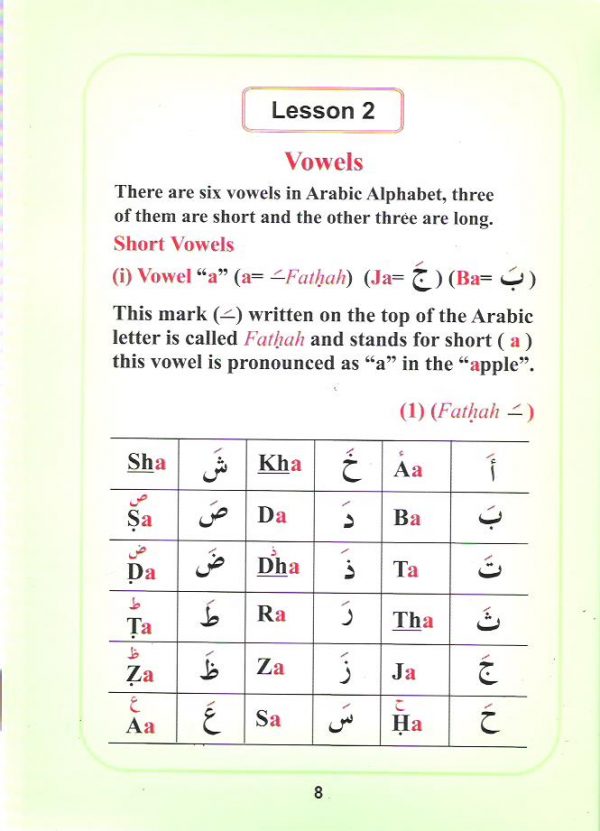 Lesson 2
Vowels
There are six vowels in Arabic Alphabet, three
of them are short and the other three are long.
Short Vowels
(i) Vowel “a” (a= ـَ Fatḥah) (Ja= جَ ) (Ba= بَ )
This mark (ـَ) written on the top of the Arabic
letter is called Fatḥah and stands for short ( a )
this vowel is pronounced as “a” in the “apple”.
(1) (Fatḥah ـَ )
Sha شَ Kha خَ Áa أَ
ص
Ṣa صَ Da دَ Ba بَ
ض ذ
Ḍa ضَ Dha ذَ Ta تَ
ط
Ṭa طَ Ra رَ Tha ثَ
ظ
Ẓa ظَ Za زَ Ja جَ
ع ح
Aa عَ Sa سَ Ḥa حَ
8